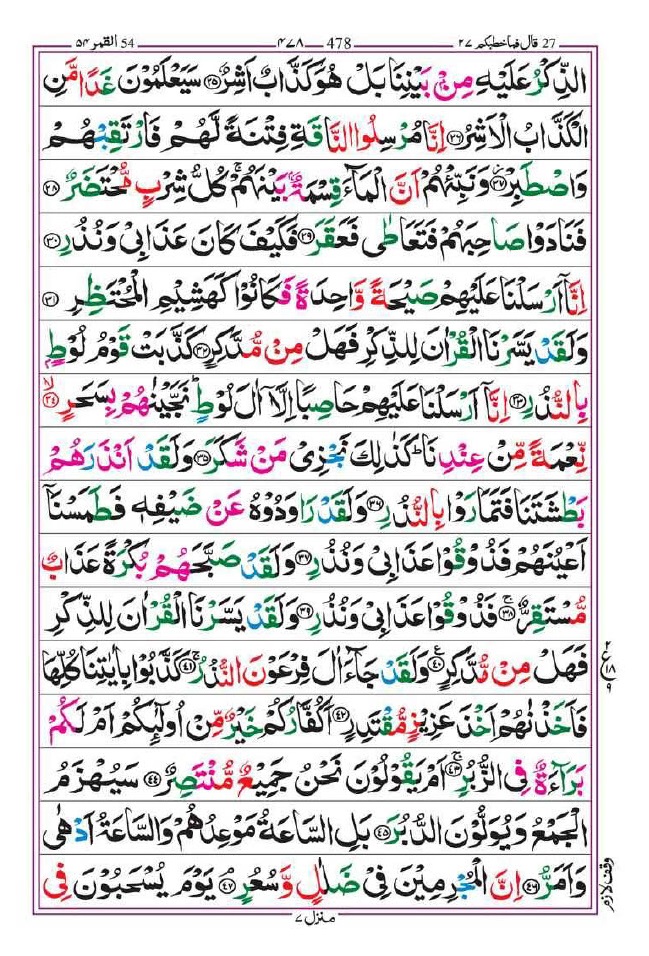 ٥٤ القمر 54 ٤٧٨ 478 قال فما خطبكم ٢٧ 27
الذِّكْرُ عَلَيْهِ مِنْۢ بَيْنِنَا بَلْ هُوَ كَذَّابٌ اَشِرٌ ۝٢٥ سَيَعْلَمُوْنَ غَدًا مَّنِ
الْكَذَّابُ الْاَشِرُ ۝٢٦ اِنَّا مُرْسِلُوا النَّاقَةِ فِتْنَةً لَّهُمْ فَارْتَقِبْهُمْ
وَاصْطَبِرْ ۝٢٧ وَنَبِّئْهُمْ اَنَّ الْمَآءَ قِسْمَةٌۢ بَيْنَهُمْ ۚ كُلُّ شِرْبٍ مُّحْتَضَرٌ ۝٢٨
فَنَادَوْا صَاحِبَهُمْ فَتَعَاطٰى فَعَقَرَ ۝٢٩ فَكَيْفَ كَانَ عَذَابِىْ وَنُذُرِ ۝٣٠
اِنَّاۤ اَرْسَلْنَا عَلَيْهِمْ صَيْحَةً وَّاحِدَةً فَكَانُوْا كَهَشِيْمِ الْمُحْتَظِرِ ۝٣١
وَلَقَدْ يَسَّرْنَا الْقُرْاٰنَ لِلذِّكْرِ فَهَلْ مِنْ مُّدَّكِرٍ ۝٣٢ كَذَّبَتْ قَوْمُ لُوْطٍۭ
بِالنُّذُرِ ۝٣٣ اِنَّاۤ اَرْسَلْنَا عَلَيْهِمْ حَاصِبًا اِلَّاۤ اٰلَ لُوْطٍ ؕ نَجَّيْنٰهُمْ بِسَحَرٍ ۝٣٤ ۙ
نِّعْمَةً مِّنْ عِنْدِنَا ؕ كَذٰلِكَ نَجْزِىْ مَنْ شَكَرَ ۝٣٥ وَلَقَدْ اَنْذَرَهُمْ
بَطْشَتَنَا فَتَمَارَوْا بِالنُّذُرِ ۝٣٦ وَلَقَدْ رَاوَدُوْهُ عَنْ ضَيْفِهٖ فَطَمَسْنَاۤ
اَعْيُنَهُمْ فَذُوْقُوْا عَذَابِىْ وَنُذُرِ ۝٣٧ وَلَقَدْ صَبَّحَهُمْ بُكْرَةً عَذَابٌ
مُّسْتَقِرٌّ ۝٣٨ ۚ فَذُوْقُوْا عَذَابِىْ وَنُذُرِ ۝٣٩ وَلَقَدْ يَسَّرْنَا الْقُرْاٰنَ لِلذِّكْرِ
فَهَلْ مِنْ مُّدَّكِرٍ ۝٤٠ ع وَلَقَدْ جَآءَ اٰلَ فِرْعَوْنَ النُّذُرُ ۝٤١ ۚ كَذَّبُوْا بِاٰيٰتِنَا كُلِّهَا
٢ ع ١٨ ٩
فَاَخَذْنٰهُمْ اَخْذَ عَزِيْزٍ مُّقْتَدِرٍ ۝٤٢ اَكُفَّارُكُمْ خَيْرٌ مِّنْ اُولٰٓئِكُمْ اَمْ لَكُمْ
بَرَآءَةٌ فِى الزُّبُرِ ۝٤٣ ۚ اَمْ يَقُوْلُوْنَ نَحْنُ جَمِيْعٌ مُّنْتَصِرٌ ۝٤٤ سَيُهْزَمُ
الْجَمْعُ وَيُوَلُّوْنَ الدُّبُرَ ۝٤٥ بَلِ السَّاعَةُ مَوْعِدُهُمْ وَالسَّاعَةُ اَدْهٰى
وَاَمَرُّ ۝٤٦ اِنَّ الْمُجْرِمِيْنَ فِىْ ضَلٰلٍ وَّسُعُرٍ ۝٤٧ ۘ يَوْمَ يُسْحَبُوْنَ فِى
وقف لازم
منزل ٧